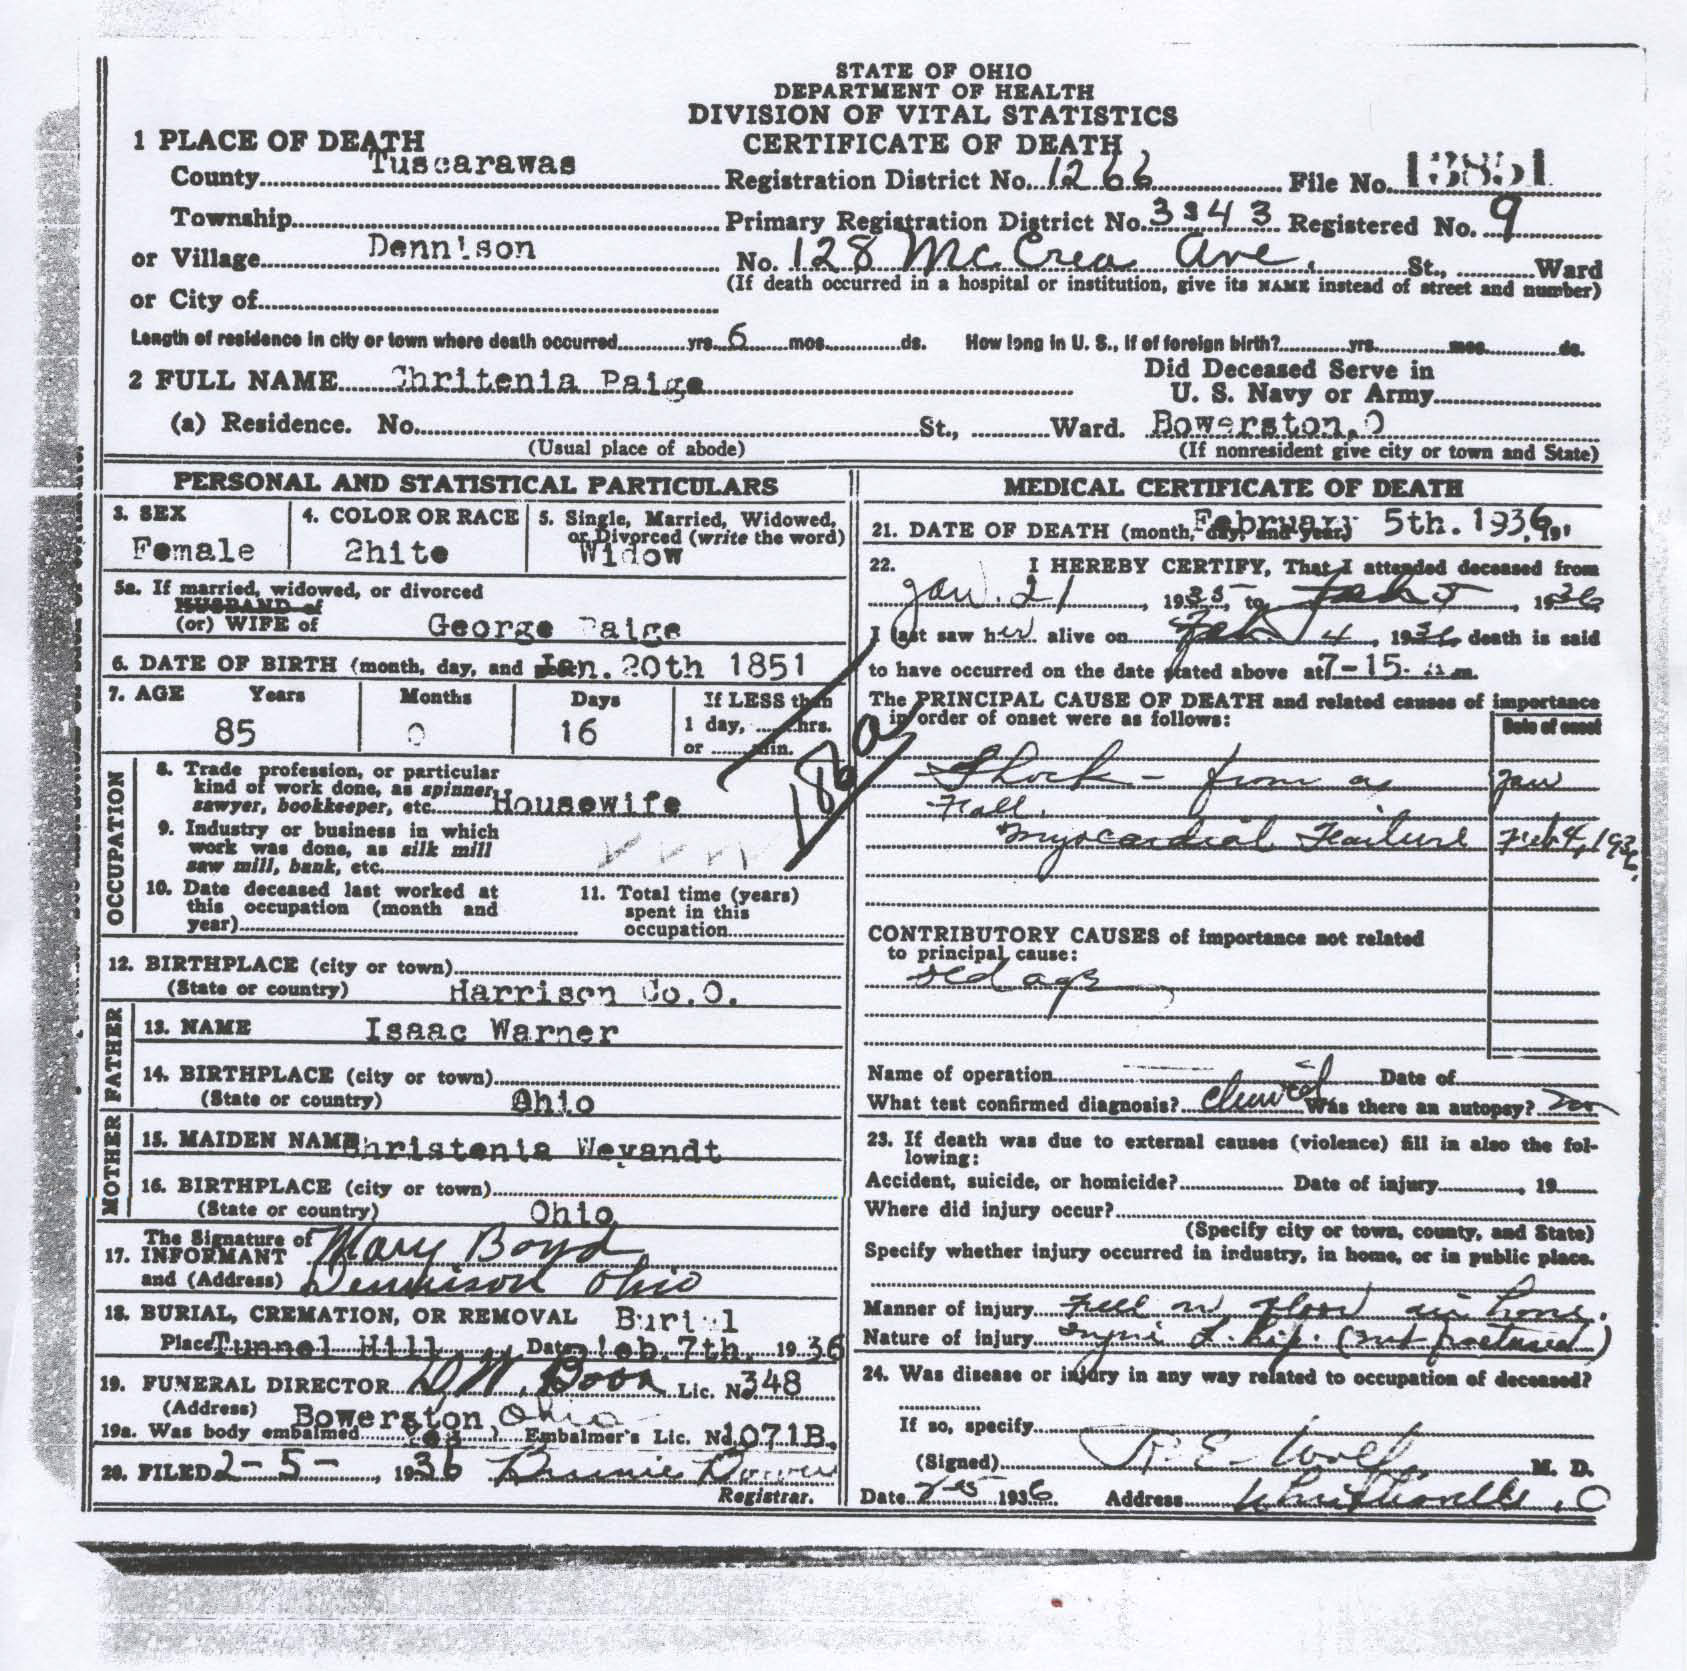 STATE OF OHIO
DEPARTMENT OF HEALTH
DIVISION OF VITAL STATISTICS
CERTIFICATE OF DEATH
1 PLACE OF DEATH
County Tuscarawas Registration District No. 1266 File No. 13851
Township Primary Registration District No. 3343 Registered No. 9
or Village Dennison No. 128 McCrea Ave. St., Ward
(If death occurred in a hospital or institution, give its NAME instead of street and number)
or City of
Length of residence in city or town where death occurred yrs. 6 mos. ds. How long in U. S., if of foreign birth? yrs. mos. ds.
2 FULL NAME Chritenia Paige Did Deceased Serve in
U. S. Navy or Army
(a) Residence. No. St., Ward. Bowerston, O
(Usual place of abode) (If nonresident give city or town and State)
PERSONAL AND STATISTICAL PARTICULARS
3. SEX
Female
4. COLOR OR RACE
2hite
5. Single, Married, Widowed,
or Divorced (write the word)
Widow
5a. If married, widowed, or divorced
HUSBAND of
(or) WIFE of George Paige
6. DATE OF BIRTH (month, day, and Jan. 20th 1851
7. AGE Years Months Days If LESS than
85 0 16 1 day, hrs.
or min.
OCCUPATION
8. Trade profession, or particular
kind of work done, as spinner,
sawyer, bookkeeper, etc. Housewife
9. Industry or business in which
work was done, as silk mill
saw mill, bank, etc.
10. Date deceased last worked at
this occupation (month and
year)
11. Total time (years)
spent in this
occupation
186a
12. BIRTHPLACE (city or town)
(State or country) Harrison Co.O.
FATHER
13. NAME Isaac Warner
14. BIRTHPLACE (city or town)
(State or country) Ohio
MOTHER
15. MAIDEN NAME Christenia Weyandt
16. BIRTHPLACE (city or town)
(State or country) Ohio
The Signature of
17. INFORMANT Mary Boyd
and (Address) Dennison Ohio
18. BURIAL, CREMATION, OR REMOVAL Burial
Place Tunnel Hill Date Feb. 7th. 1936
19. FUNERAL DIRECTOR D.W. Boor Lic. No 348
(Address) Bowerston, Ohio
19a. Was body embalmed Yes Embalmer's Lic. No 1071B.
20. FILED 2-5-, 1936
Registrar.
MEDICAL CERTIFICATE OF DEATH
21. DATE OF DEATH (month, day, and year) February 5th. 1936, 19
22. I HEREBY CERTIFY, That I attended deceased from
Jan. 21, 1935, to Feb 5, 1936
I last saw her alive on Feb 4, 1936 death is said
to have occurred on the date stated above at 7-15- A m.
The PRINCIPAL CAUSE OF DEATH and related causes of importance
in order of onset were as follows: Date of onset
Shock - from a Jan
Fall.
Myocardial Failure Feb 4, 1936
CONTRIBUTORY CAUSES of importance not related
to principal cause:
old age
Name of operation Date of
What test confirmed diagnosis? Clinical Was there an autopsy? no
23. If death was due to external causes (violence) fill in also the fol-
lowing:
Accident, suicide, or homicide? Date of injury, 19
Where did injury occur?
(Specify city or town, county, and State)
Specify whether injury occurred in industry, in home, or in public place.
Manner of injury Fell on floor in home.
Nature of injury L. hip. (not fractured)
24. Was disease or injury in any way related to occupation of deceased?
If so, specify
(Signed) R. E. Wolf M. D.
Date 2-5 1936 Address O